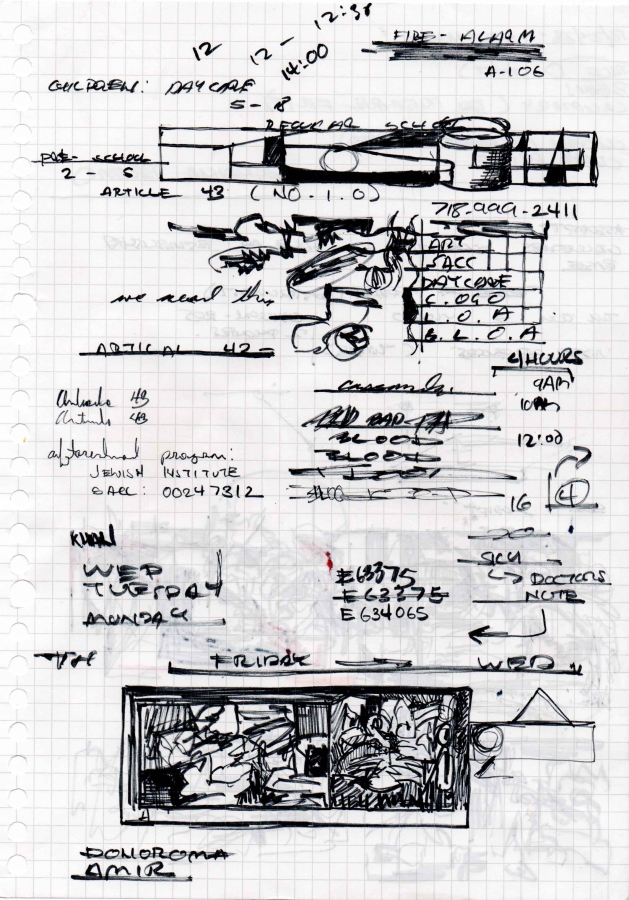 12 12 - 12:30
14:00
FIRE - ALARM
A-106
CHILDREN: DAYCARE
5 - 8
REGULAR SCHO
PRE - SCHOOL
2 - 5
ARTICLE 43 (NO. 1.0)
718-999-2411
ART
SACC
DAYCARE
C.OGO
L.O.A
B.L.O.A
we need this
ARTICAL 42-
4 HOURS
9AM
10AM
12:00
43
43
BAD
BLOOD
BLOOD
program:
JEWISH INSTITUTE
SACC: 00247812
16
4
KHAN
WED
TUESDAY
MONDAY
E63375
E63375
E634065
SICK
DOCTORS
NOTE
TH FRIDAY WED
DONOROMA
AMIR